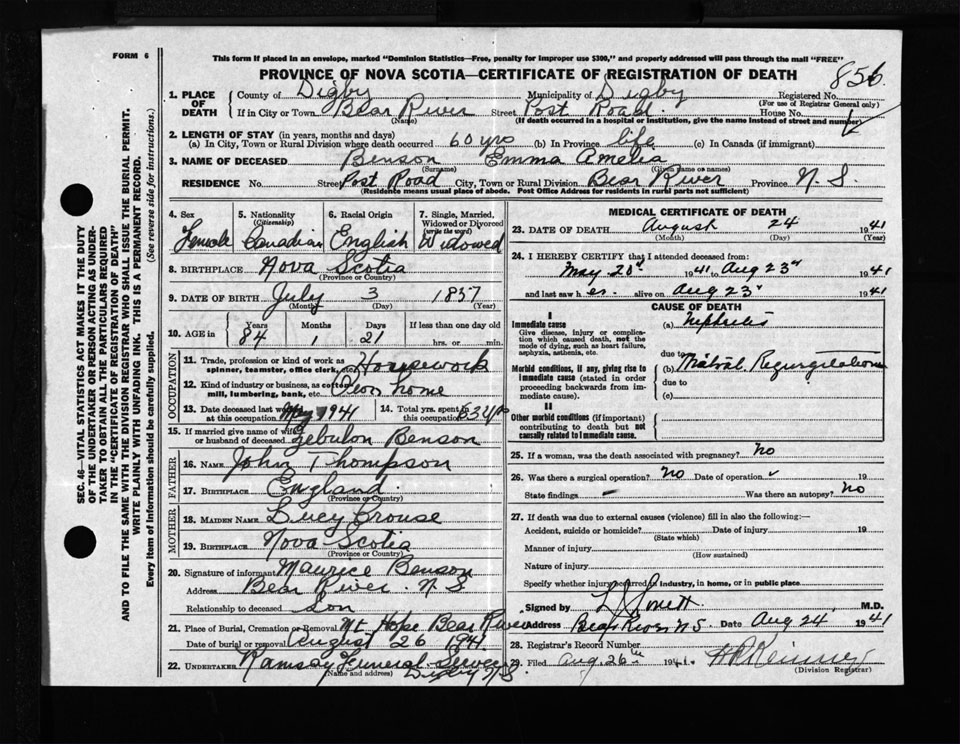 FORM 6
This form if placed in an envelope, marked "Dominion Statistics—Free, penalty for improper use $300," and properly addressed will pass through the mail "FREE"
PROVINCE OF NOVA SCOTIA—CERTIFICATE OF REGISTRATION OF DEATH
856
1. PLACE OF DEATH
County of Digby Municipality of Digby Registered No.
(For use of Registrar General only)
If in City or Town Bear River Street Post Road House No.
(Name) (If death occurred in a hospital or institution, give the name instead of street and number)
2. LENGTH OF STAY (in years, months and days)
(a) In City, Town or Rural Division where death occurred 60 yrs (b) In Province life (c) In Canada (if immigrant)
3. NAME OF DECEASED Benson Emma Amelia
(Surname) (Given name or names)
RESIDENCE No. Street Post Road City, Town or Rural Division Bear River Province N. S.
(Residence means usual place of abode. Post Office Address for residents in rural parts not sufficient)
4. Sex Female
5. Nationality (Citizenship) Canadian
6. Racial Origin English
7. Single, Married, Widowed or Divorced (write the word) Widowed
8. BIRTHPLACE Nova Scotia
(Province or Country)
9. DATE OF BIRTH July 3 1857
(Month) (Day) (Year)
10. AGE in Years 84 Months 1 Days 21 If less than one day old hrs. or min.
OCCUPATION
11. Trade, profession or kind of work as spinner, teamster, office clerk, etc. Housework
12. Kind of industry or business, as cotton mill, lumbering, bank, etc. own home
13. Date deceased last worked at this occupation May 1941
14. Total yrs. spent in this occupation
15. If married give name of wife or husband of deceased Zebulon Benson
FATHER
16. NAME John Thompson
17. BIRTHPLACE England
(Province or Country)
MOTHER
18. MAIDEN NAME Lucy Crouse
19. BIRTHPLACE Nova Scotia
(Province or Country)
20. Signature of informant Maurice Benson
Address Bear River N. S.
Relationship to deceased Son
21. Place of Burial, Cremation or Removal Mt Hope Bear River
Date of burial or removal August 26 1941
22. UNDERTAKER Ramsay Funeral Service
(Name and address) Digby N.S.
MEDICAL CERTIFICATE OF DEATH
23. DATE OF DEATH August 24 1941
(Month) (Day) (Year)
24. I HEREBY CERTIFY that I attended deceased from:
May 20th 1941, Aug 23rd 1941
and last saw her alive on Aug 23rd 1941
CAUSE OF DEATH
I
Immediate cause
Give disease, injury or complication which caused death, not the mode of dying, such as heart failure, asphyxia, asthenia, etc.
(a) Nephritis
due to
Morbid conditions, if any, giving rise to immediate cause (stated in order proceeding backwards from immediate cause).
(b) Mitral Regurgitation
due to
(c)
II
Other morbid conditions (if important) contributing to death but not causally related to immediate cause.
25. If a woman, was the death associated with pregnancy? No
26. Was there a surgical operation? No Date of operation 19
State findings — Was there an autopsy? No
27. If death was due to external causes (violence) fill in also the following:—
Accident, suicide or homicide? Date of injury 19
(State which)
Manner of injury
(How sustained)
Nature of injury
Specify whether injury occurred in industry, in home, or in public place
Signed by M.D.
Address Bear River N S. Date Aug 24 1941
28. Registrar's Record Number
29. Filed Aug. 26th 1941.
(Division Registrar)
SEC. 46—VITAL STATISTICS ACT MAKES IT THE DUTY
OF THE UNDERTAKER OR PERSON ACTING AS UNDERTAKER TO OBTAIN ALL THE PARTICULARS REQUIRED
IN THE "CERTIFICATE OF REGISTRATION OF DEATH"
AND TO FILE THE SAME WITH THE DIVISION REGISTRAR WHO SHALL ISSUE THE BURIAL PERMIT.
WRITE PLAINLY WITH UNFADING INK. THIS IS A PERMANENT RECORD.
Every item of Information should be carefully supplied. (See reverse side for instructions.)